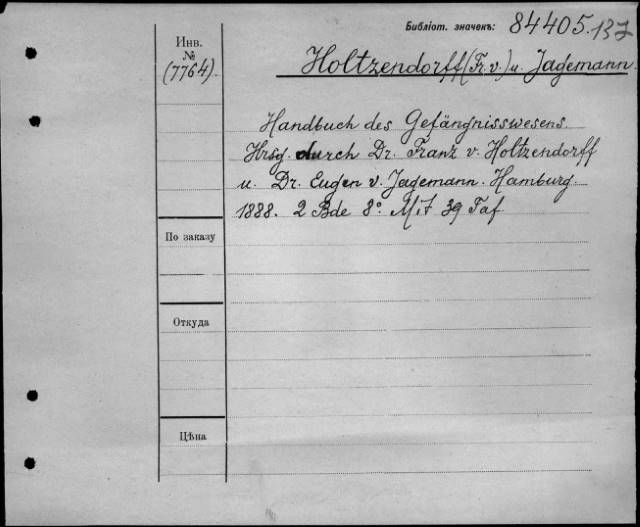 Библіот. значекъ: 84405.137
Инв.
№
(7764).
Holtzendorff (Fr. v.) u. Jagemann.
Handbuch des Gefängnisswesens.
Hrsg. durch Dr. Franz v. Holtzendorff
u. Dr. Eugen v. Jagemann. Hamburg.
1888. 2 Bde 8° Mit 39 Taf
По заказу
Откуда
Цѣна